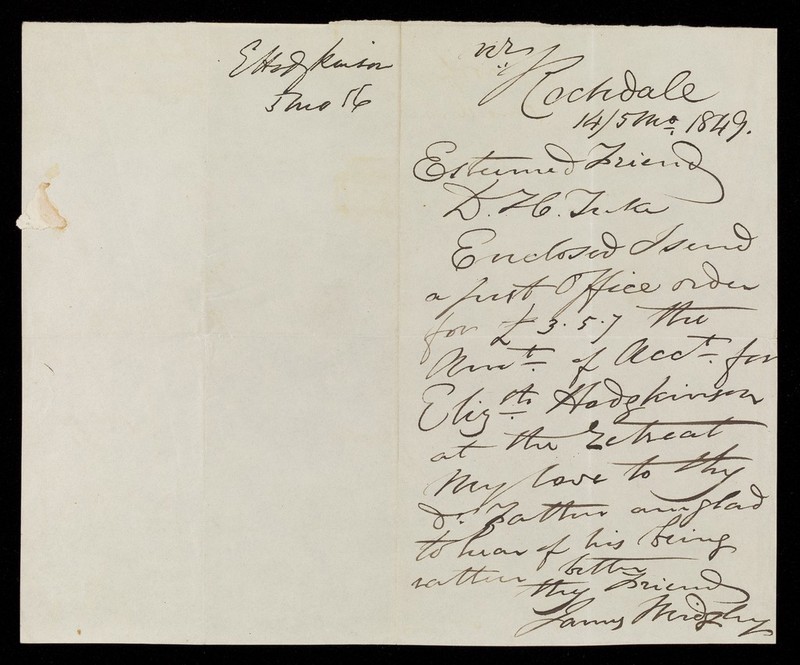 E Hodgkinson
5 mo 56
Rochdale
14/5 Mo. 1849.
Esteemed Friend
D. H. Tuke
Enclosed I send
a post Office order
for £3.5.7 the
Amt. of Acct. for
Elizth. Hodgkinson
at the Retreat
My love to thy
dr. Father am glad
to hear of his being
rather better
thy Friend
James Midgley